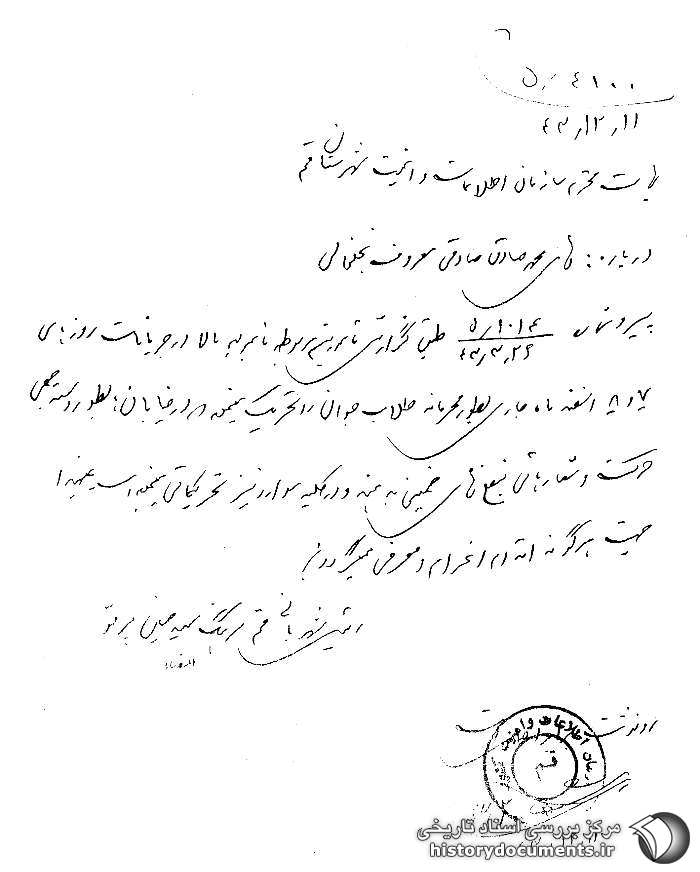 ۵/۴۱۰۰
۴۳/۱۲/۱۱
ریاست محترم سازمان اطلاعات و امنیت شهرستان قم
درباره: آقای محمد صادق صادقی معروف بخلخالی
پیرو شماره ۵/۱۰۱۴ ۴۳/۳/۲۶ طبق گزارش مامورین مربوطه نامبرده بالا در جریانات روزهای
۷ و ۸ اسفند ماه جاری بطور محرمانه طلاب جوان را تحریک مینموده در خیابان بطور دسته جمعی
حرکت و شعارهائی بنفع آقای خمینی بدهند و در کلیه موارد نیز تحریکاتی مینموده است علیهذا
جهت هرگونه اقدام اعزام و معرفی میگردد
رئیس شهربانی قم سرهنگ سید حسین پرتو
رونوشت
سازمان اطلاعات و امنیت
قم
مرکز بررسی اسناد تاریخی
historydocuments.ir